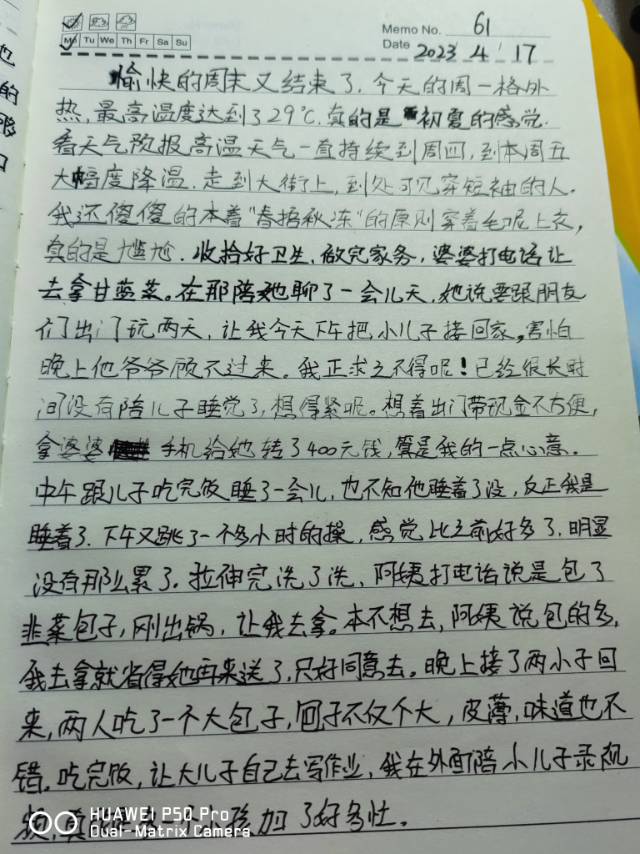 Memo No. 61
Mo Tu We Th Fr Sa Su
Date 2023 4 17
愉快的周末又结束了,今天的周一格外
热,最高温度达到了29℃,真的是初夏的感觉.
看天气预报高温天气一直持续到周四,到本周五
大幅度降温.走到大街上,到处可见穿短袖的人.
我还傻傻的本着"春捂秋冻"的原则穿着毛呢上衣,
真的是尴尬.收拾好卫生,做完家务,婆婆打电话让
去拿甘蓝菜。在那陪她聊了一会儿天,她说要跟朋友
们出门玩两天,让我今天下午把小儿子接回家,害怕
晚上他爷爷顾不过来.我正求之不得呢!已经很长时
间没有陪儿子睡觉了,想得紧呢。想着出门带现金不方便,
拿婆婆手机给她转了400元钱,算是我的一点心意.
中午跟儿子吃完饭睡了一会儿,也不知他睡着了没,反正我是
睡着了.下午又跳了一个多小时的操,感觉比之前好多了,明显
没有那么累了.拉伸完洗了洗,阿姨打电话说是包了
韭菜包子,刚出锅,让我去拿。本不想去,阿姨说包的多,
我去拿就省得她再来送了,只好同意去.晚上接了两小子回
来,两人吃了一个大包子,包子不仅个大,皮薄,味道也不
错.吃完饭,让大儿子自己去写作业,我在外面陪小儿子录视
频,真 一个小孩加了好多灶。
HUAWEI P50 Pro
Dual-Matrix Camera
也
的